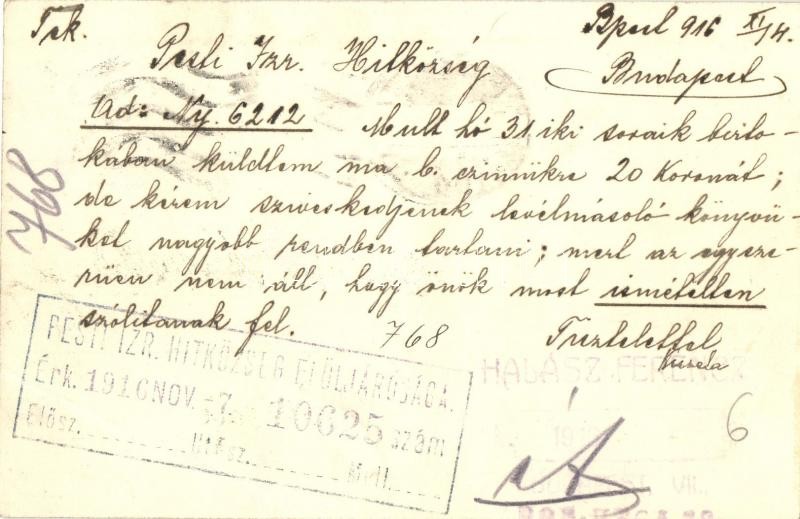 Tek.
Bpest 916 XI/4.
Pesti Izr. Hitközség
Budapest
Ad: Ny. 6212 Mult hó 31 iki soraik birto-
kában küldtem ma b. czimükre 20 Koronát;
de kérem sziveskedjenek levélmásoló könyvü-
ket nagyobb rendben tartani; mert az egysze-
rüen nem áll, hogy önök most ismételten
szólitanak fel.
768
Tisztelettel
768
PESTI IZR. HITKÖZSÉG ELÖLJÁRÓSÁGA.
Érk. 1916 NOV. -7 10625 szám
Elősz. Utósz. Mell.
HALÁSZ FERENCZ
6
VII.,